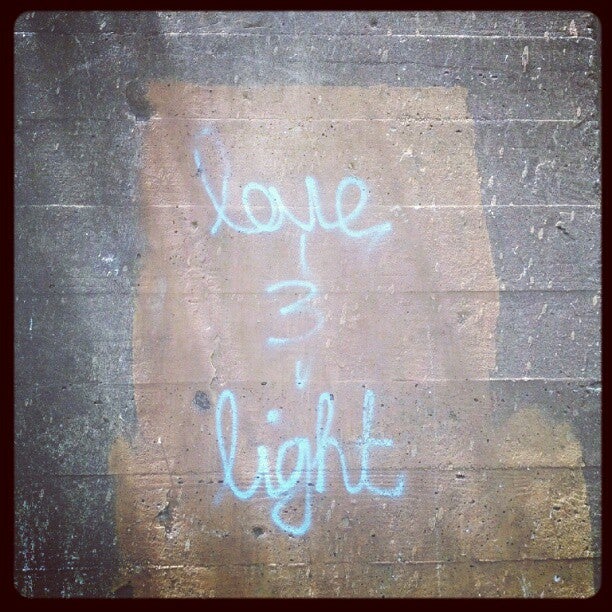 love
3
light